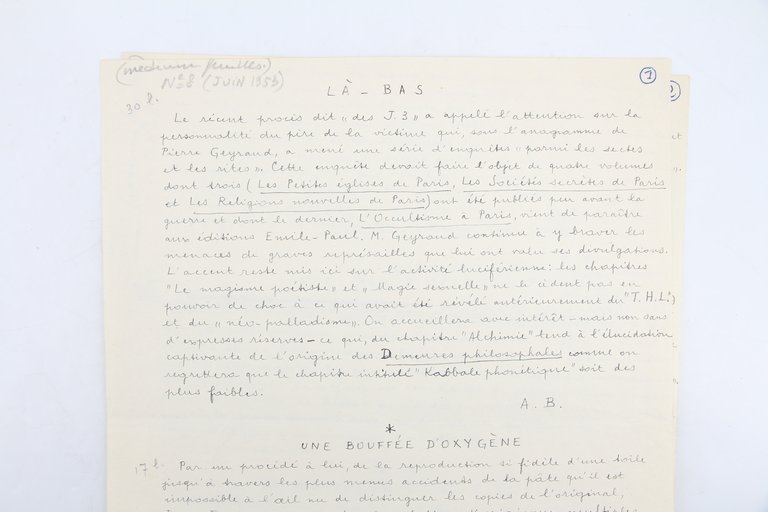 (médium feuilles.)
N° 8 (JUIN 1953)
1
2
30 l.
LÀ-BAS
Le récent procès dit "des J.3" a appelé l'attention sur la
personnalité du père de la victime qui, sous l'anagramme de
Pierre Geyraud, a mené une série d'enquêtes "parmi les sectes
et les rites". Cette enquête devait faire l'objet de quatre volumes
dont trois (Les Petites églises de Paris, Les Sociétés secrètes de Paris
et Les Religions nouvelles de Paris) ont été publiés peu avant la
guerre et dont le dernier, L'Occultisme à Paris, vient de paraître
aux éditions Emile-Paul. M. Geyraud continue à y braver les
menaces de graves représailles que lui ont valu ses divulgations.
L'accent reste mis ici sur l'activité luciférienne: les chapitres
"Le magisme poétiste" et "Magie sexuelle" ne le cèdent pas en
pouvoir de choc à ce qui avait été révélé antérieurement du "T.H.L."
et du "néo-palladisme". On accueillera avec intérêt - mais non sans
d'expresses réserves - ce qui, du chapitre "Alchimie" tend à l'élucidation
captivante de l'origine des Demeures philosophales comme on
regrettera que le chapitre intitulé "Kabbale phonétique" soit des
plus faibles.
A. B.
*
UNE BOUFFÉE D'OXYGÈNE
17 l.
Par un procédé à lui, de la reproduction si fidèle d'une toile
jusqu'à travers les plus menus accidents de la pâte qu'il est
impossible à l'œil nu de distinguer les copies de l'original,
et